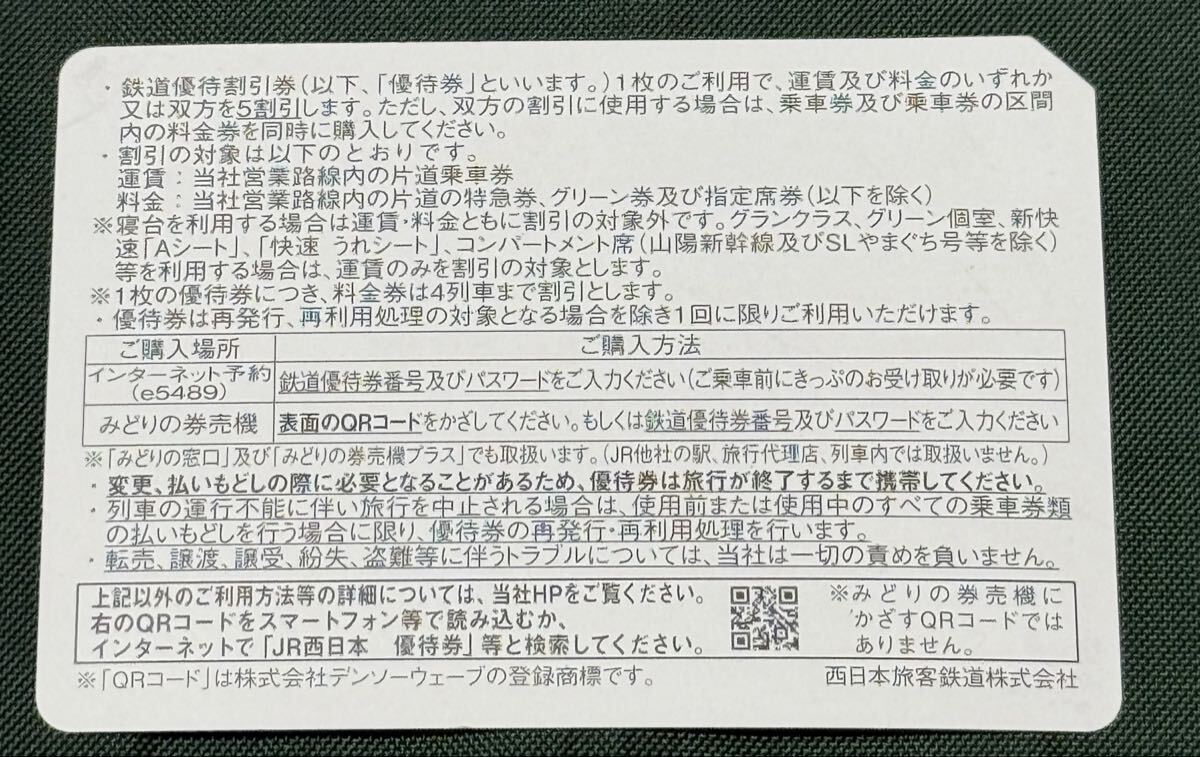 ・鉄道優待割引券(以下、「優待券」といいます。)1枚のご利用で、運賃及び料金のいずれか
又は双方を5割引します。ただし、双方の割引に使用する場合は、乗車券及び乗車券の区間
内の料金券を同時に購入してください。
・割引の対象は以下のとおりです。
運賃：当社営業路線内の片道乗車券
料金：当社営業路線内の片道の特急券、グリーン券及び指定席券(以下を除く)
※寝台を利用する場合は運賃・料金ともに割引の対象外です。グランクラス、グリーン個室、新快
速「Aシート」、「快速 うれシート」、コンパートメント席(山陽新幹線及びSLやまぐち号等を除く)
等を利用する場合は、運賃のみを割引の対象とします。
※1枚の優待券につき、料金券は4列車まで割引とします。
・優待券は再発行、再利用処理の対象となる場合を除き1回に限りご利用いただけます。
ご購入場所 ご購入方法
インターネット予約
(e5489)
鉄道優待券番号及びパスワードをご入力ください(ご乗車前にきっぷのお受け取りが必要です)
みどりの券売機 表面のQRコードをかざしてください。もしくは鉄道優待券番号及びパスワードをご入力ください
※「みどりの窓口」及び「みどりの券売機プラス」でも取扱います。(JR他社の駅、旅行代理店、列車内では取扱いません。)
・変更、払いもどしの際に必要となることがあるため、優待券は旅行が終了するまで携帯してください。
・列車の運行不能に伴い旅行を中止される場合は、使用前または使用中のすべての乗車券類
の払いもどしを行う場合に限り、優待券の再発行・再利用処理を行います。
・転売、譲渡、譲受、紛失、盗難等に伴うトラブルについては、当社は一切の責めを負いません。
上記以外のご利用方法等の詳細については、当社HPをご覧ください。
右のQRコードをスマートフォン等で読み込むか、
インターネットで「JR西日本 優待券」等と検索してください。
※みどりの券売機に
かざすQRコードでは
ありません。
※「QRコード」は株式会社デンソーウェーブの登録商標です。
西日本旅客鉄道株式会社